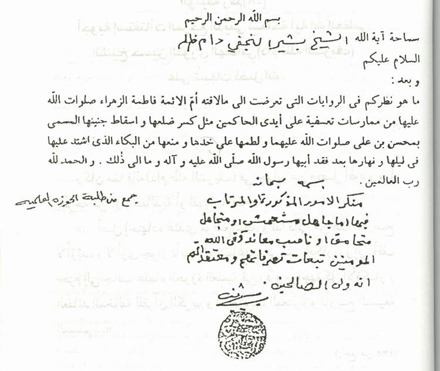 بسم الله الرحمن الرحيم
سماحة آية الله الشيخ بشير النجفي دام ظله
السلام عليكم
و بعد :
ما هو نظركم في الروايات التى تعرضت الى مالاقته أمّ الائمة فاطمة الزهراء صلوات الله
عليها من ممارسات تعسفية على أيدى الحاكمين مثل كسر ضلعها و اسقاط جنينها المسمى
بمحسن بن على صلوات الله عليهما و لطمها على خدها و منعها من البكاء الذى اشتد عليها
فى ليلها و نهارها بعد فقد أبيها رسول الله صلّى الله عليه و آله و ما الى ذلك . و الحمد لله
رب العالمين .
جمع من طلبة الحوزة العلمية
بسمه سبحانه
منكر الامور المذكورة والمرتاب
فيها اما جاهل او متجاهل
او ناصب معاند وقى الله
المؤمنين تبعات تصرفاتهم ومعتقداتهم
انه ولى الصالحين